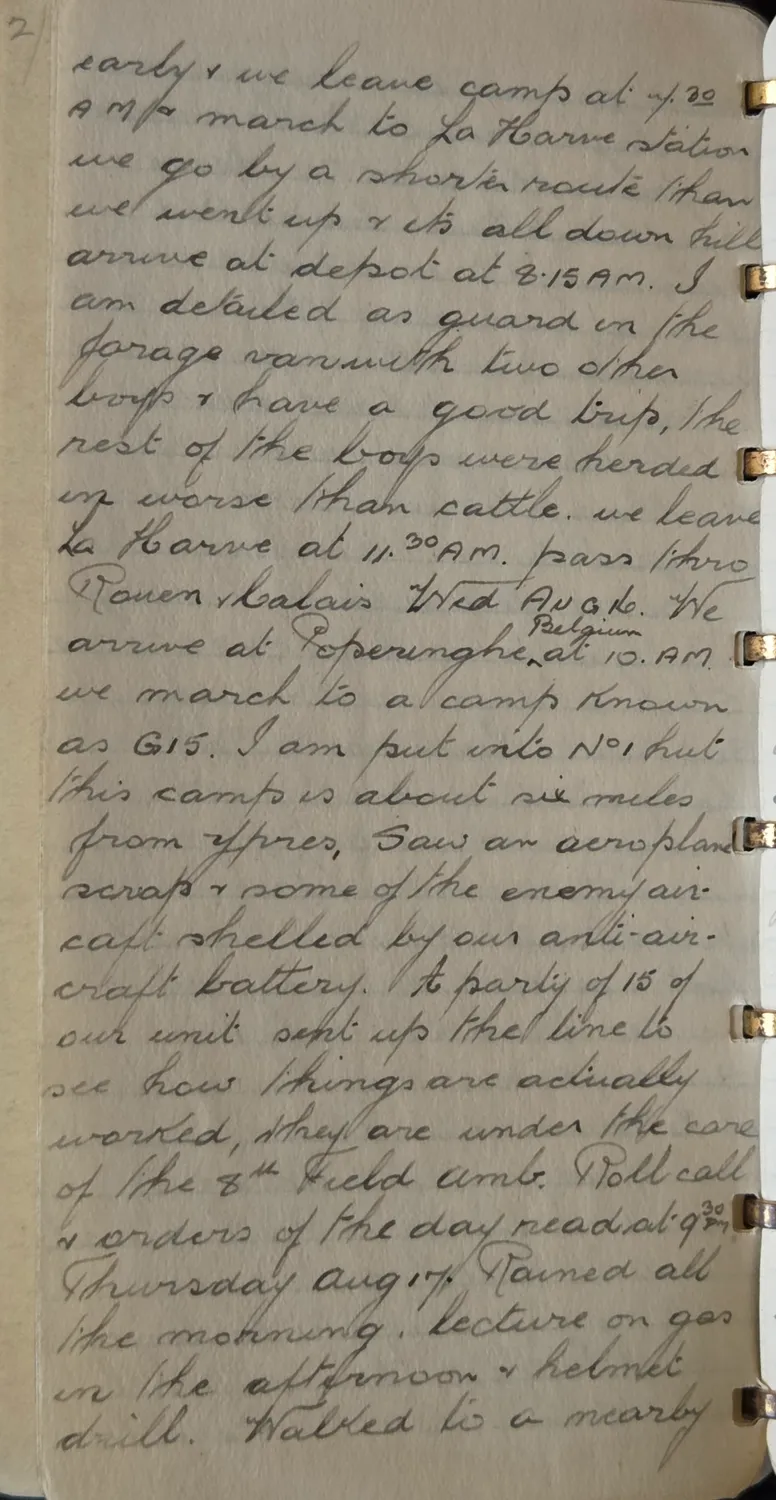 2
early & we leave camp at 7.30
AM & march to La Harve station
we go by a shorter route than
we went up & its all down hill
arrive at depot at 8.15 AM. I
am detailed as guard in the
forage van with two other
boys & have a good trip, the
rest of the boys were herded
in worse than cattle. we leave
La Harve at 11.30 AM. pass thro
Rouen & Calais Wed AUG 16. We
arrive at Poperinghe, ^Belgium at 10. AM.
we march to a camp known
as G15. I am put into No 1 hut
this camp is about six miles
from Ypres, Saw an aeroplane
scrap & some of the enemy air-
caft shelled by our anti-air-
craft battery. A party of 15 of
our unit sent up the line to
see how things are actually
worked, they are under the care
of the 8th Field Amb. Roll call
& orders of the day read at 9 30 pm
Thursday Aug 17. Rained all
the morning. lecture on gas
in the afternoon & helmet
drill. Walked to a nearby